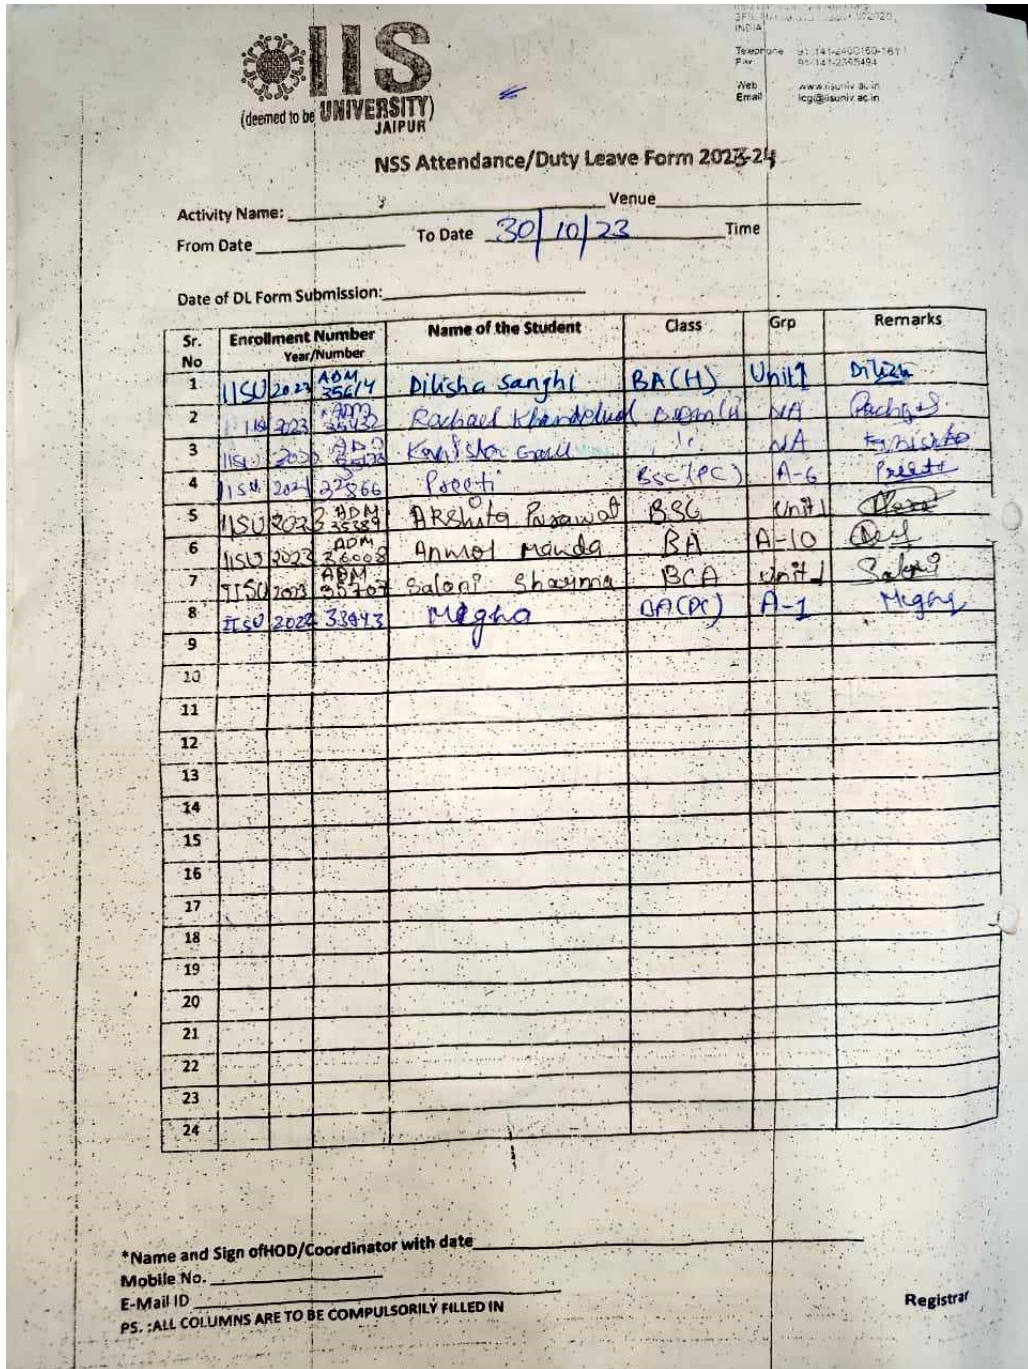 IIS
(deemed to be UNIVERSITY)
JAIPUR
INDIA
Telephone 91-141-2400160-161
Fax 91-141-2395494
Web www.iisuniv.ac.in
Email icg@iisuniv.ac.in
NSS Attendance/Duty Leave Form 2023-24
Activity Name: Venue
From Date To Date 30/10/23 Time
Date of DL Form Submission:
Sr. No Enrollment Number Year/Number Name of the Student Class Grp Remarks
1 IISU 2023 ADM 35614 Dilisha Sanghi BA(H) Unit1
2 2023 ADM NA
3 NA
4 IISU 2021 Preeti BSc (PC) A-6 Preeti
5 IISU 2023 ADM 35389 Unit1
6 IISU 2023 ADM 36008 Anmol Manda BA A-10
7 IISU 2023 ADM 35707 Saloni Sharma BCA Unit1 Saloni
8 IISU 2022 33943 Megha BA(PC) A-1 Megha
9
10
11
12
13
14
15
16
17
18
19
20
21
22
23
24
*Name and Sign ofHOD/Coordinator with date
Mobile No.
E-Mail ID
PS. :ALL COLUMNS ARE TO BE COMPULSORILY FILLED IN
Registrar